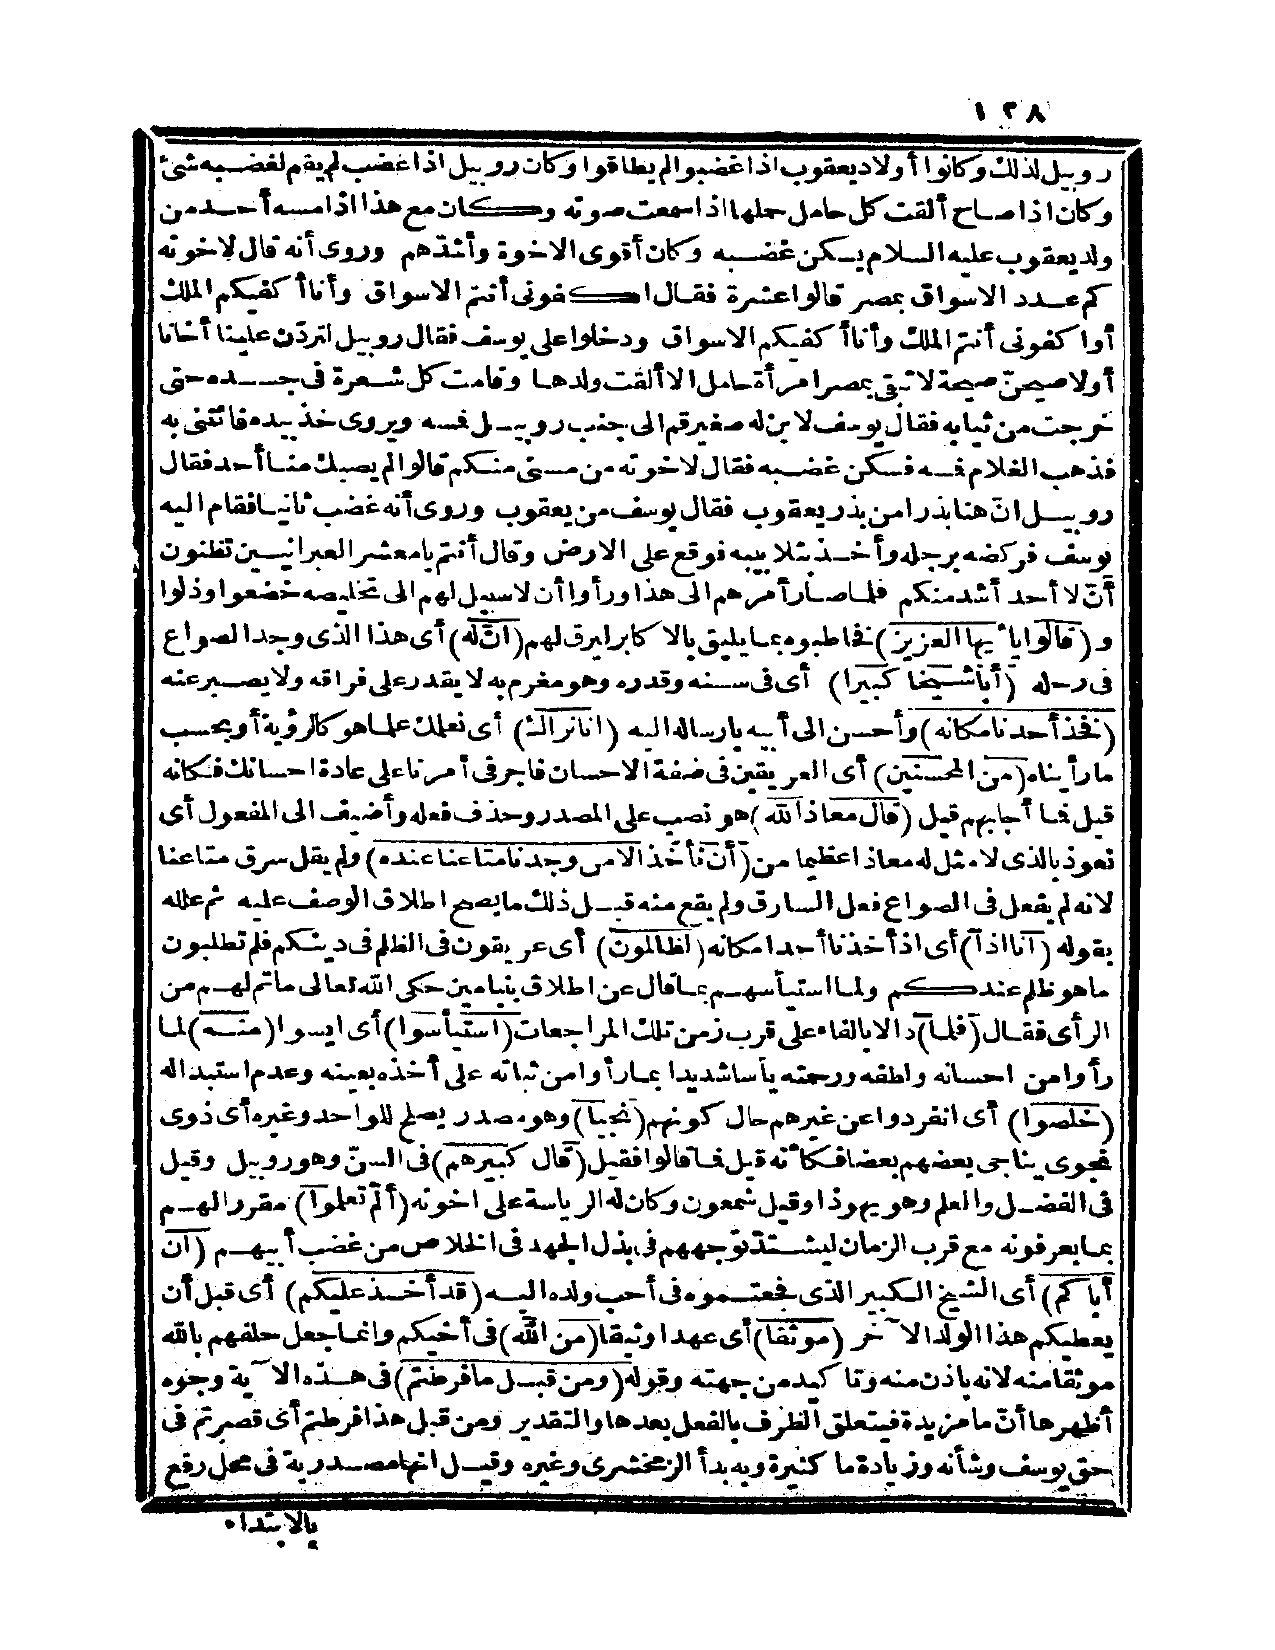 ١٢٨
روبيل لذلك وكانوا أولاد يعقوب اذا غضبوا لم يطاقوا وكان روبيل اذا غضب لم يقم لغضبه شئ
وكان اذا صاح ألقت كل حامل حملها اذا سمعت صوته وكان مع هذا اذا مسه أحد من
ولد يعقوب عليه السلام يسكن غضبه وكان أقوى الاخوة وأشدهم وروى أنه قال لاخوته
كم عدد الاسواق بمصر قالوا عشرة فقال اكفونى أنتم الاسواق وأنا أكفيكم الملك
أو اكفونى أنتم الملك وأنا أكفيكم الاسواق ودخلوا على يوسف فقال روبيل لتردّن علينا أخانا
أو لاصيحنّ صيحة لا تبقى بمصر امرأة حامل الا ألقت ولدها وقامت كل شعرة فى جسده حتى
خرجت من ثيابه فقال يوسف لابن له صغير قم الى جنب روبيل فمسه ويروى خذ بيده فائتنى به
فذهب الغلام فمسه فسكن غضبه فقال لاخوته من مسنى منكم قالوا لم يصبك منا أحد فقال
روبيل انّ هنا بذرا من بذر يعقوب فقال يوسف من يعقوب وروى أنه غضب ثانيا فقام اليه
يوسف فركضه برجله وأخذ بتلابيبه فوقع على الارض وقال أنتم يا معشر العبرانيين تظنون
أنّ لا أحد أشد منكم فلما صار أمرهم الى هذا ورأوا أن لا سبيل لهم الى تخليصه خضعوا وذلوا
و (قالوا يا أيها العزيز) فخاطبوه بما يليق بالاكابر ليرق لهم (انّ له) أى هذا الذى وجد الصواع
فى رحله (أبا شيخا كبيرا) أى فى سنه وقدره وهو مغرم به لا يقدر على فراقه ولا يصبر عنه
(فخذ أحدنا مكانه) وأحسن الى أبيه بارساله اليه (انا نراك) أى نعلمك علما هو كالرؤية أو بحسب
ما رأيناه (من المحسنين) أى العريقين فى صفة الاحسان فاجر فى أمرنا على عادة احسانك فكانه
قيل فما أجابهم قيل (قال معاذ الله) هو نصب على المصدر وحذف فعله وأضيف الى المفعول أى
نعوذ بالذى لا مثل له معاذا عظيما من (أن نأخذ الا من وجدنا متاعنا عنده) ولم يقل سرق متاعنا
لانه لم يفعل فى الصواع فعل السارق ولم يقع منه قبل ذلك ما يصح اطلاق الوصف عليه ثم علله
بقوله (انا اذا) أى اذ أخذنا أحدا مكانه (لظالمون) أى عريقون فى الظلم فى دينكم فلم تطلبون
ما هو ظلم عندكم ولما استيأسهم بما قال عن اطلاق بنيامين حكى الله تعالى ما تم لهم من
الرأى فقال (فلما) دالا بالفاء على قرب زمن تلك المراجعات (استيأسوا) أى ايسوا (منه) لما
رأوا من احسانه ولطفه ورحمته يأسا شديدا بما رأوا من ثباته على أخذه بعينه وعدم استبداله
(خلصوا) أى انفردوا عن غيرهم حال كونهم (نجيا) وهو مصدر يصلح للواحد وغيره أى ذوى
نجوى يناجى بعضهم بعضا فكأنه قيل فما قالوا فقيل (قال كبيرهم) فى السنّ وهو روبيل وقيل
فى الفضل والعلم وهو يهوذا وقيل شمعون وكان له الرياسة على اخوته (ألم تعلموا) مقررا لهم
بما يعرفونه مع قرب الزمان ليشتدّ توجههم فى بذل الجهد فى الخلاص من غضب أبيهم (أن
أباكم) أى الشيخ الكبير الذى فجعتموه فى أحب ولده اليه (قد أخذ عليكم) أى قبل أن
يعطيكم هذا الولد الآخر (موثقا) أى عهدا وثيقا (من الله) فى أخيكم وانما جعل حلفهم بالله
موثقا منه لانه باذن منه وتاكيد من جهته وقوله (ومن قبل ما فرطتم) فى هذه الآية وجوه
أظهرها أنّ ما مزيدة فيتعلق الظرف بالفعل بعدها والتقدير ومن قبل هذا فرطتم أى قصرتم فى
حق يوسف وشأنه وزيادة ما كثيرة وبه بدأ الزمخشرى وغيره وقيل انها مصدرية فى محل رفع
بالابتداء